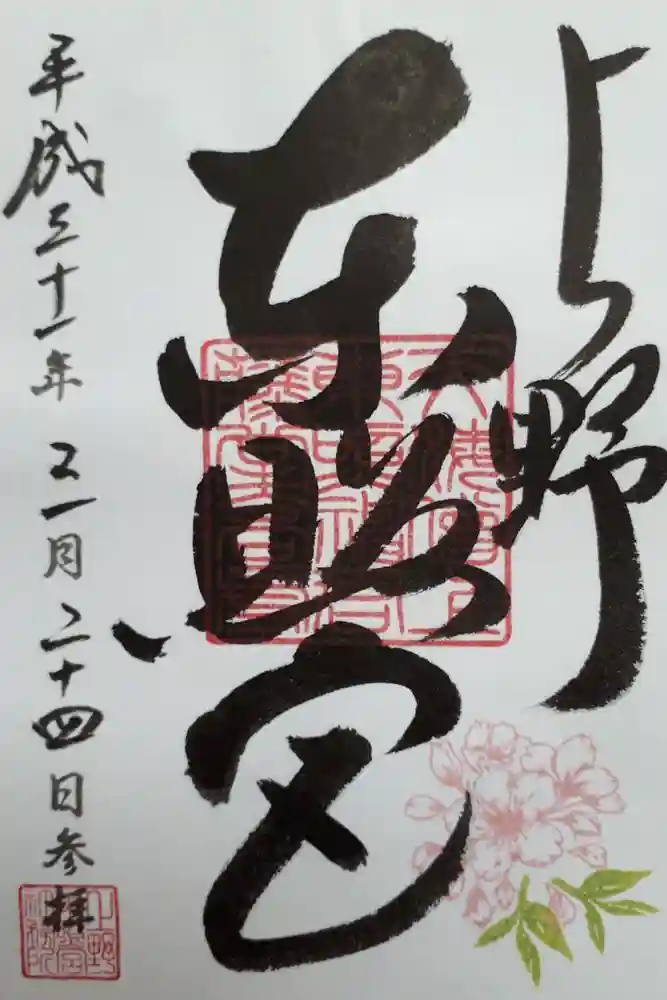 上野
東照宮
平成三十一年 三月二十四日参拝